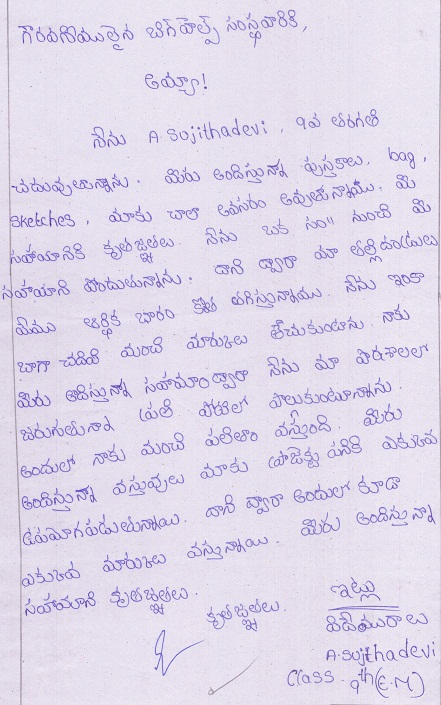 గౌరవనీయులైన బిగ్‌హెల్ప్ సంస్థవారికి,
అయ్యా!
నేను A. Sujithadevi, 9వ తరగతి
చదువుతున్నాను. మీరు అందిస్తున్న పుస్తకాలు, bag,
sketches, మాకు చాలా అవసరం అవుతున్నాయి. మీ
సహాయానికి కృతజ్ఞతలు. నేను ఒక సం॥ నుంచి మీ
సహాయాని పొందుతున్నాను. దాని ద్వారా మా తల్లిదండ్రులు
మేము ఆర్థిక భారం కొంత తగ్గిస్తున్నాము. నేను ఇంకా
బాగా చదివి మంచి మార్కులు తెచుకుంటాను. నాకు
మీరు అదిస్తున్న సహాయం ద్వారా నేను మా పాఠశాలలో
జరుగుతున్న ప్రతి పోటీలో పాలుకుంటూన్నాను.
అందులో నాకు మంచి ఫలితం వస్తుంది. మీరు
అందిస్తున్న వస్తువులు మాకు ప్రాజెక్టు పనికి ఎకుడవ
ఉపయోగపడుతున్నాయి. దాని ద్వారా అందులో కూడా
ఎకుడవ మార్కులు వస్తున్నాయి. మీరు అందిస్తున్న
సహాయాని కృతజ్ఞతలు.
కృతజ్ఞతలు.
ఇట్లు
విదేయురాలు
A. Sujithadevi
Class. 9th (E.M)